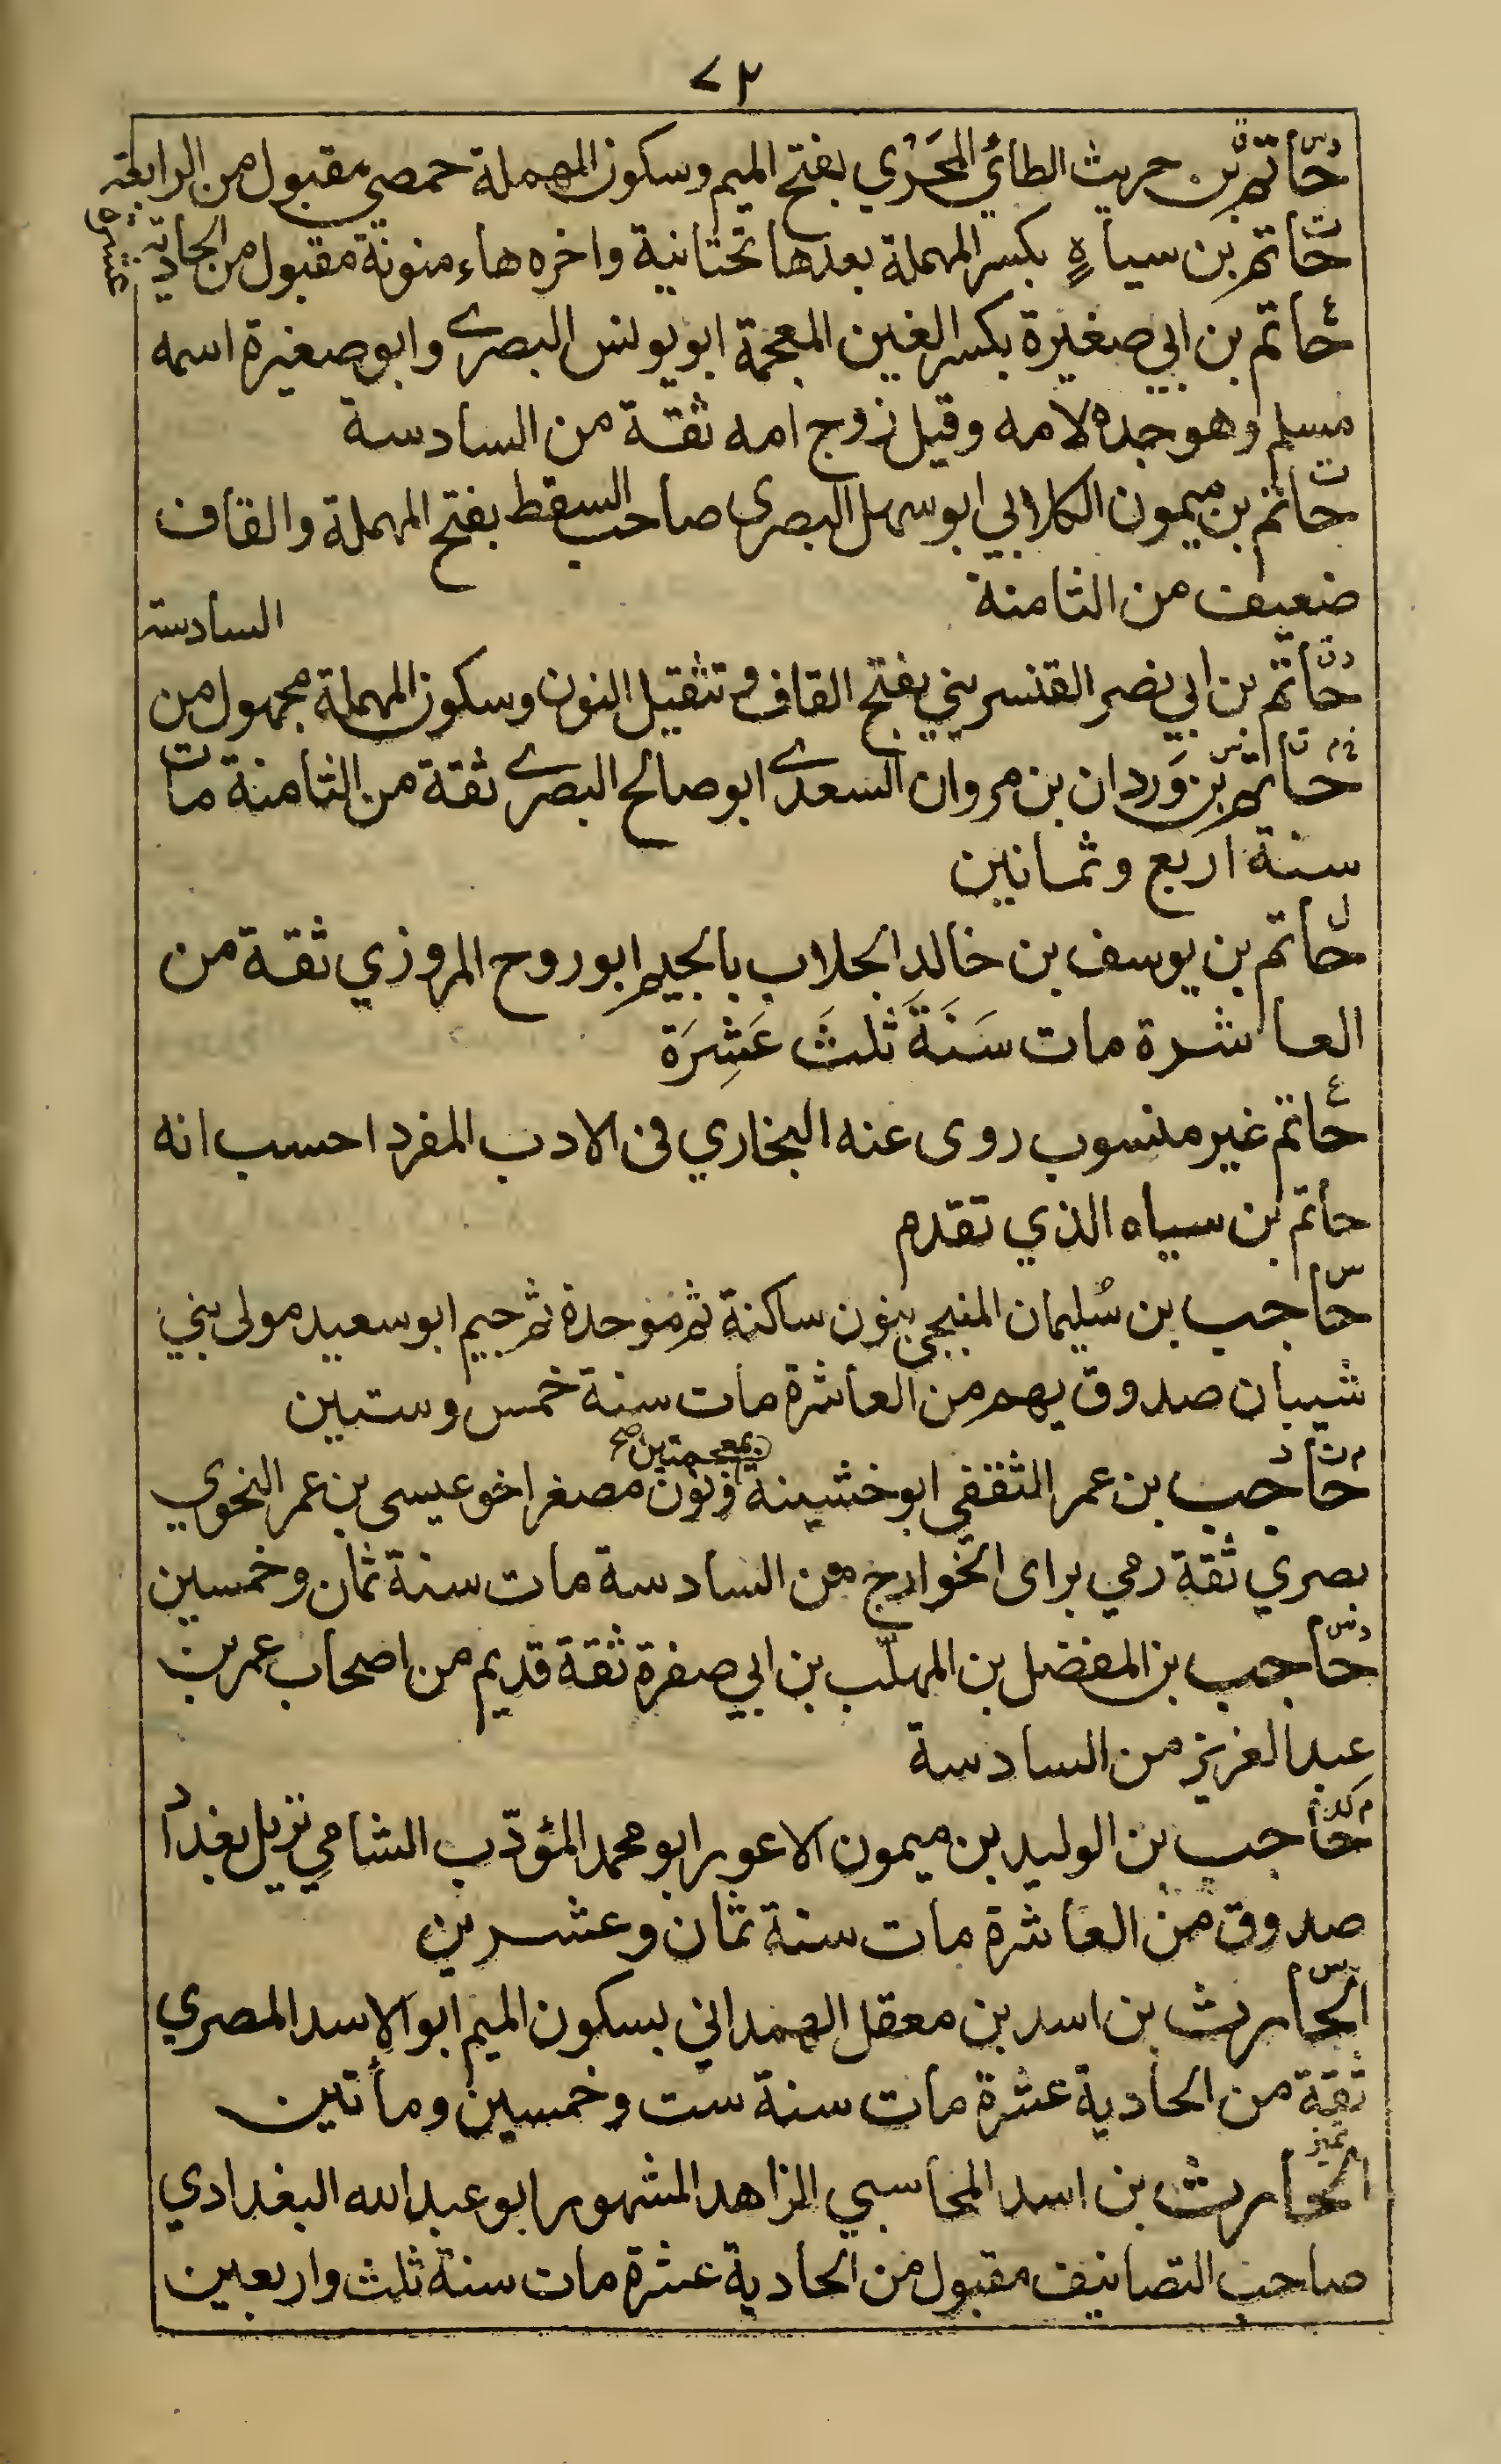 ٧٢
حاتم بن حريث الطائي المَحَرْي بفتح الميم وسكون المهملة حمصي مقبول من الرابعة
حاتم بن سياهٍ بكسر المهملة بعدها تحتانية واخره هاء منونة مقبول من الحادية عشرة
حاتم بن ابي صغيرة بكسر الغين المعجمة ابو يونس البصرے وابو صغيرة اسمه
مسلم وهو جده لامه وقيل زوج امه ثقة من السادسة
حاتم بن ميمون الكلابي ابو سهل البصرى صاحب السقط بفتح المهملة والقاف
ضعيف من الثامنة
حاتم بن ابي نصر القنسريني بفتح القاف وتثقيل النون وسكون المهملة مجهول من السادسة
حاتم بن وَردان بن مروان السعدے ابو صالح البصرے ثقة من الثامنة مات
سنة اربع وثمانين
حاتم بن يوسف بن خالد الجلاب بالجيم ابو روح المروزي ثقة من
العاشرة مات سَنَةَ ثلثَ عَشِرَة
حاتم غير منسوب روى عنه البخاري فى الادب المفرد احسب انه
حاتم بن سياه الذي تقدم
حاجب بن سُليمان المنبجي بنون ساكنة ثم موحدة ثم جيم ابو سعيد مولى بني
شيبان صدوق يهم من العاشرة مات سنة خمس وستين
حاجب بن عمر الثقفي ابو خشينة بمعجمتين صح ونون مصغر اخو عيسى بن عمر النحوي
بصري ثقة رمي براى الخوارج من السادسة مات سنة ثمان وخمسين
حاجب بن المفضل بن المهلّب بن ابي صفرة ثقة قديم من اصحاب عمر بن
عبد العزيز من السادسة
حاجب بن الوليد بن ميمون الاعور ابو محمد المؤدّب الشامي نزيل بغداد
صدوق من العاشرة مات سنة ثمان وعشرين
الحارث بن اسد بن معقل الهمداني بسكون الميم ابو الاسد المصري
ثقة من الحادية عشرة مات سنة ست وخمسين ومأتين
تميز
الحارث بن اسد المحاسبي الزاهد المشهور ابو عبد الله البغدادي
صاحب التصانيف مقبول من الحادية عشرة مات سنة ثلث واربعين